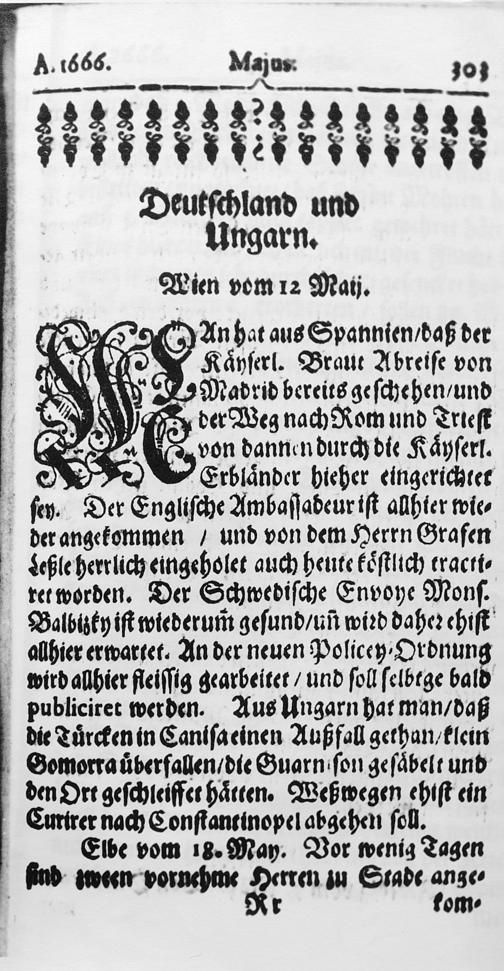 A. 1666. Majus. 303
Deutschland und
Ungarn.
Wien vom 12 Maij.
MAn hat aus Spannien/daß der
Käyserl. Braut Abreise von
Madrid bereits geschehen/und
der Weg nach Rom und Triest
von dannen durch die Käyserl.
Erbländer hieher eingerichtet
sey. Der Englische Ambassadeur ist allhier wie-
der angekommen / und von dem Herrn Grafen
Leßle herrlich eingeholet auch heute köstlich tracti-
ret worden. Der Schwedische Envoye Mons.
Balbizky ist wiederum̃ gesund/uñ wird daher ehist
allhier erwartet. An der neuen Policey-Ordnung
wird allhier fleissig gearbeitet / und soll selbige bald
publiciret werden. Aus Ungarn hat man/daß
die Türcken in Canisa einen Außfall gethan/klein
Gomorra überfallen/die Guarnison gesäbelt und
den Ort geschleiffet hätten. Weßwegen ehist ein
Currirer nach Constantinopel abgehen soll.
Elbe vom 18. May. Vor wenig Tagen
sind zween vornehme Herren zu Stade ange-
Rr kom-